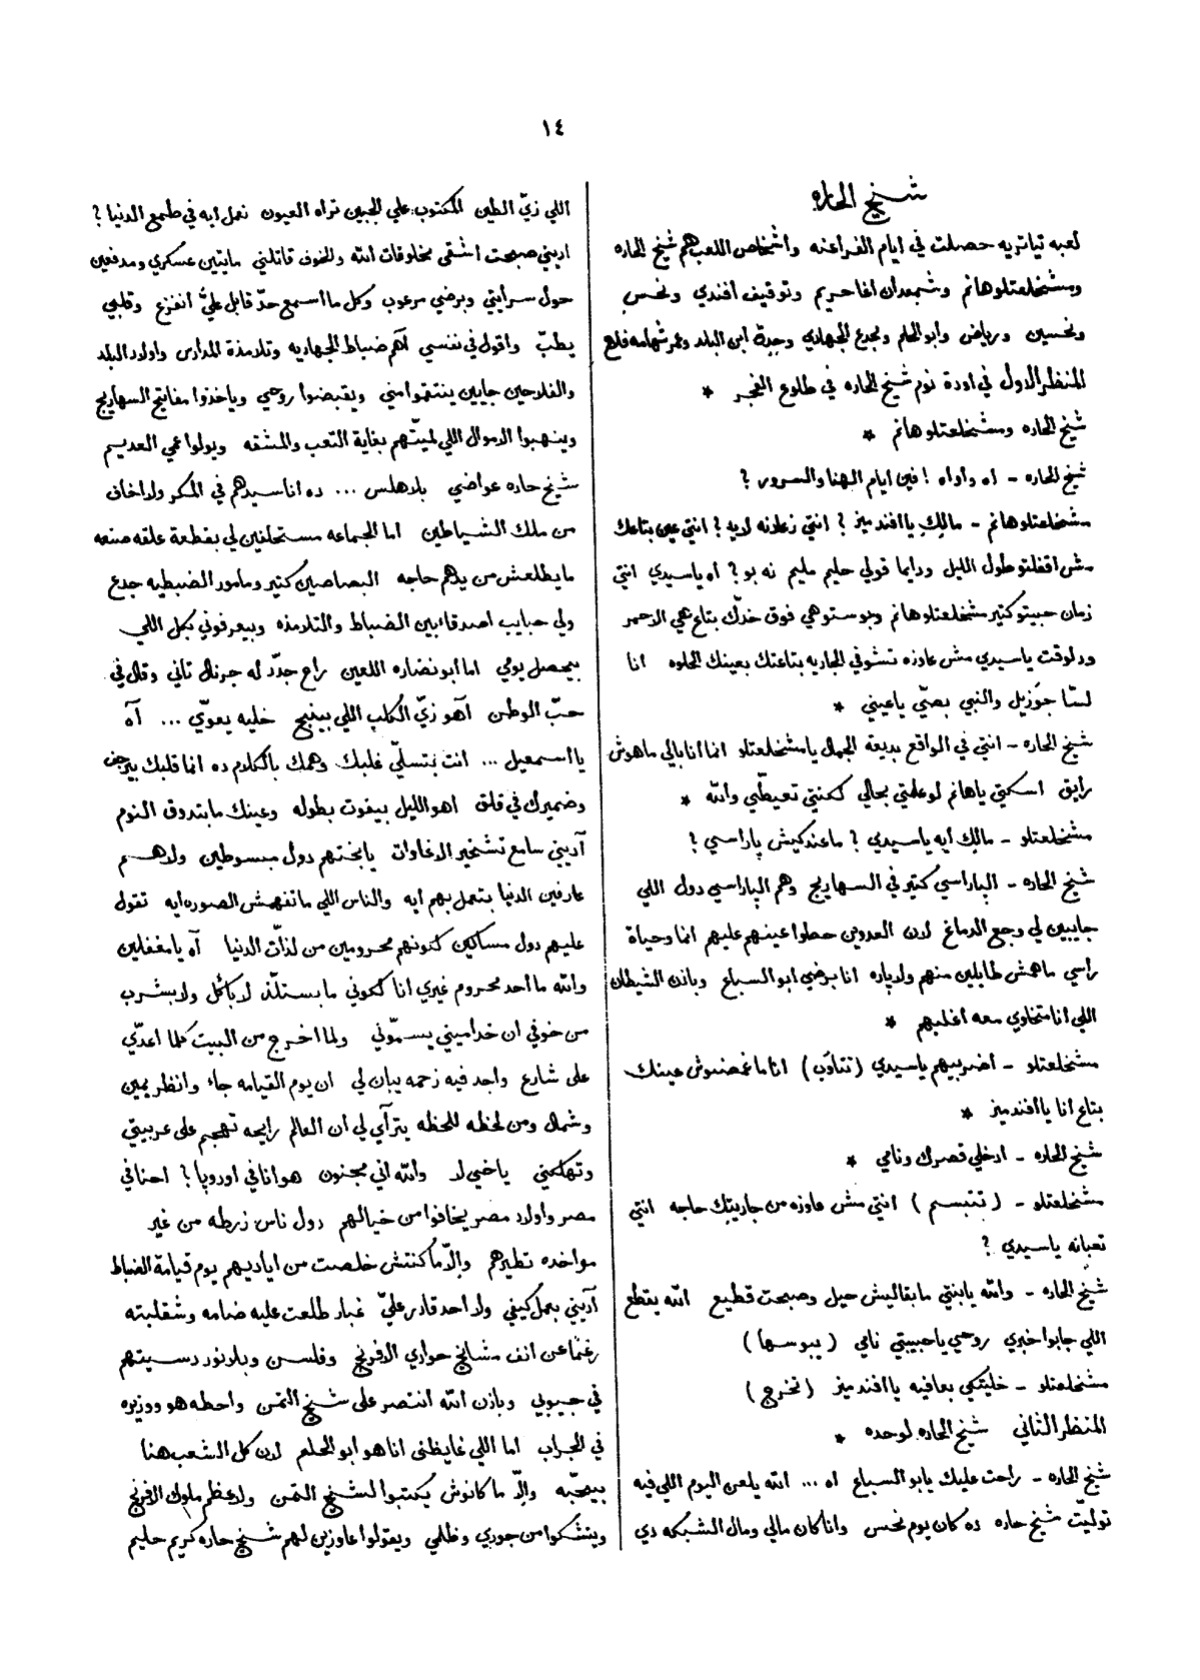 ١٤
شيخ الحاره
لعبه تياتريه حصلت في ايام الفراعنه واشخاص اللعب هم شيخ الحاره
ومشخلعتلو هانم وشمعدان اغا حريم وتوقيف افندي ونحس
ونحسين ورياض وابو الحلم وجدع الجهادي وحدقة ابن البلد وعمر شهامه فلاح
المنظر الاول في اودة نوم شيخ الحاره في طلوع الفجر *
شيخ الحاره ومشخلعتلو هانم *
شيخ الحاره - اه واواه ! فين ايام الهنا والسرور ?
مشخلعتلو هانم - مالك يا افنديز ? انتي زعلانه لايه ? انتي عين بتاعك
مش اقفلتو طول الليل ودايما قولي حليم مليم نه بو ? اه يا سيدي انتي
زمان حبيتو كتير مشخلعتلو هانم وبوستوهي فوق خدّك بتاع هي الاحمر
ودلوقت يا سيدي مش عاوزه تشوفي الجاريه بتاعتك بعينك الحلوه انا
لسّا جوّزيل والنبي بصّي يا عيني *
شيخ الحاره - انتي في الواقع بديعة الجمال يا مشخلعتلو انما انا بالي ماهوش
رايق اسكتي يا هانم لو علمتي بحالي لكنتي تعيطّي والله *
مشخلعتلو - مالك ايه يا سيدي ? ما عندكيش پاراسي ?
شيخ الحاره - الپاراسي كتير في السهاريج وهم الپاراسي دول اللي
جايبين لي وجع الدماغ لان العدوين حطوا عينهم عليهم انما وحياة
راسي ماهش طايلين منهم ولا پاره انا برضي ابو السباع وباذن الشيطان
اللي انا متخاوي معه اغلبهم *
مشخلعتلو - اضربيهم يا سيدي (تتاوّب) انا ما غمضتوش عينك
بتاع انا يا افنديز *
شيخ الحاره - ادخلي قصرك ونامي *
مشخلعتلو - ( تتبسم ) انتي مش عاوزه من جاريتك حاجه انتي
تعبانه يا سيدي ?
شيخ الحاره - والله يا بنتي ما بقاليش حيل وصبحت قطيع الله يقطع
اللي جابوا خبري روحي يا حبيبتي نامي ( يبوسها )
مشخلعتلو - خليتكي بعافيه يا افنديز ( تخرج )
المنظر الثاني شيخ الحاره لوحده *
شيخ الحاره - راحت عليك يا بو السباع اه ... الله يلعن اليوم اللي فيه
توليّت شيخ حاره ده كان يوم نحس وانا كان مالي ومال الشبكه دي
اللي زيّ الطين المكتوب علي الجبين تراه العيون نعمل ايه في طمع الدنيا ?
اديني صبحت اشقى مخلوقات الله والخوف قاتلني مايتين عسكري ومدفعين
حول سرايتي وبرضي مرعوب وكل ما اسمع حدّ قابل عليّ انفزع وقلبي
يطبّ واقول في نفسي آهم ضباط الجهاديه وتلامذة المدارس واولاد البلد
والفلاحين جايين ينتقموا مني ويقبضوا روحي وياخذوا مفاتيح السهاريج
وينهبوا الاموال اللي لميّتهم بغاية التعب والمشقه ويولوا عمي العديم
شيخ حاره عواضي بلا هلس ... ده انا سيدهم في المكر ولا اخاف
من ملك الشياطين اما الجماعه مستحلفين لي بقطعة علقه صنعه
ما يطلعش من يدهم حاجه البصاصين كتير ومامور الضبطيه جدع
ولي حبايب اصدقاء بين الضباط والتلامذه وبيعرفوني بكل اللي
بيحصل يومي اما ابو نضاره اللعين راح جدّد له جرنال تاني وقال في
حبّ الوطن آهو زيّ الكلب اللي بينبح خليه يعوّي ... آه
يا اسمعيل ... انت بتسلّي غلبك وهمك بالكلام ده انما قلبك بيرجف
وضميرك في قلق اهو الليل بيفوت بطوله وعينك ما بتدوق النوم
آديني سامع تشخير الاغاوات يا بختهم دول مبسوطين ولا هم
عارفين الدنيا بتعمل بهم ايه والناس اللي ما تفهمش الصوره ايه تقول
عليهم دول مساكين لكونهم محرومين من لذّات الدنيا آه يا مغفلين
والله ما احد محروم غيري انا لكوني ما بستلّذ لا بأكل ولا بشرب
من خوفي ان خداميني يسمّوني ولما اخرج من البيت كلما اعدّي
على شارع واجد فيه زحمه يبان لي ان يوم القيامه جاء وانظر يمين
وشمال ومن لحظه للحظه يترآي لي ان العالم رايحه تهجم على عربيتي
وتهلكني يا خي لا والله اني مجنون هو انا في اوروپا ? احنا في
مصر واولاد مصر يخافوا من خيالهم دول ناس زرطه من غير
مواخذه تطيرهم والّا ما كنتش خلصت من اياديهم يوم قيامة الضباط
آديني بعمل كيفي ولا احد قادر عليّ غبار طلعت عليه ضامه وشقلبته
رغماً عن انف مشايخ حواري الافرنج وفلسن وبلانور دسيتهم
في جيوبي وباذن الله انتصر على شيخ التمن واحطه هو ووزيره
في الجراب اما اللي غايظني انا هو ابو الحلم لان كل الشعب هنا
بيحبّه والّا ما كانوش يكتبوا لشيخ التمن ولاعظم ملوك الافرنج
ويتشكوا من جوري وظلمي ويقولوا عاوزين لهم شيخ حاره كريم حليم